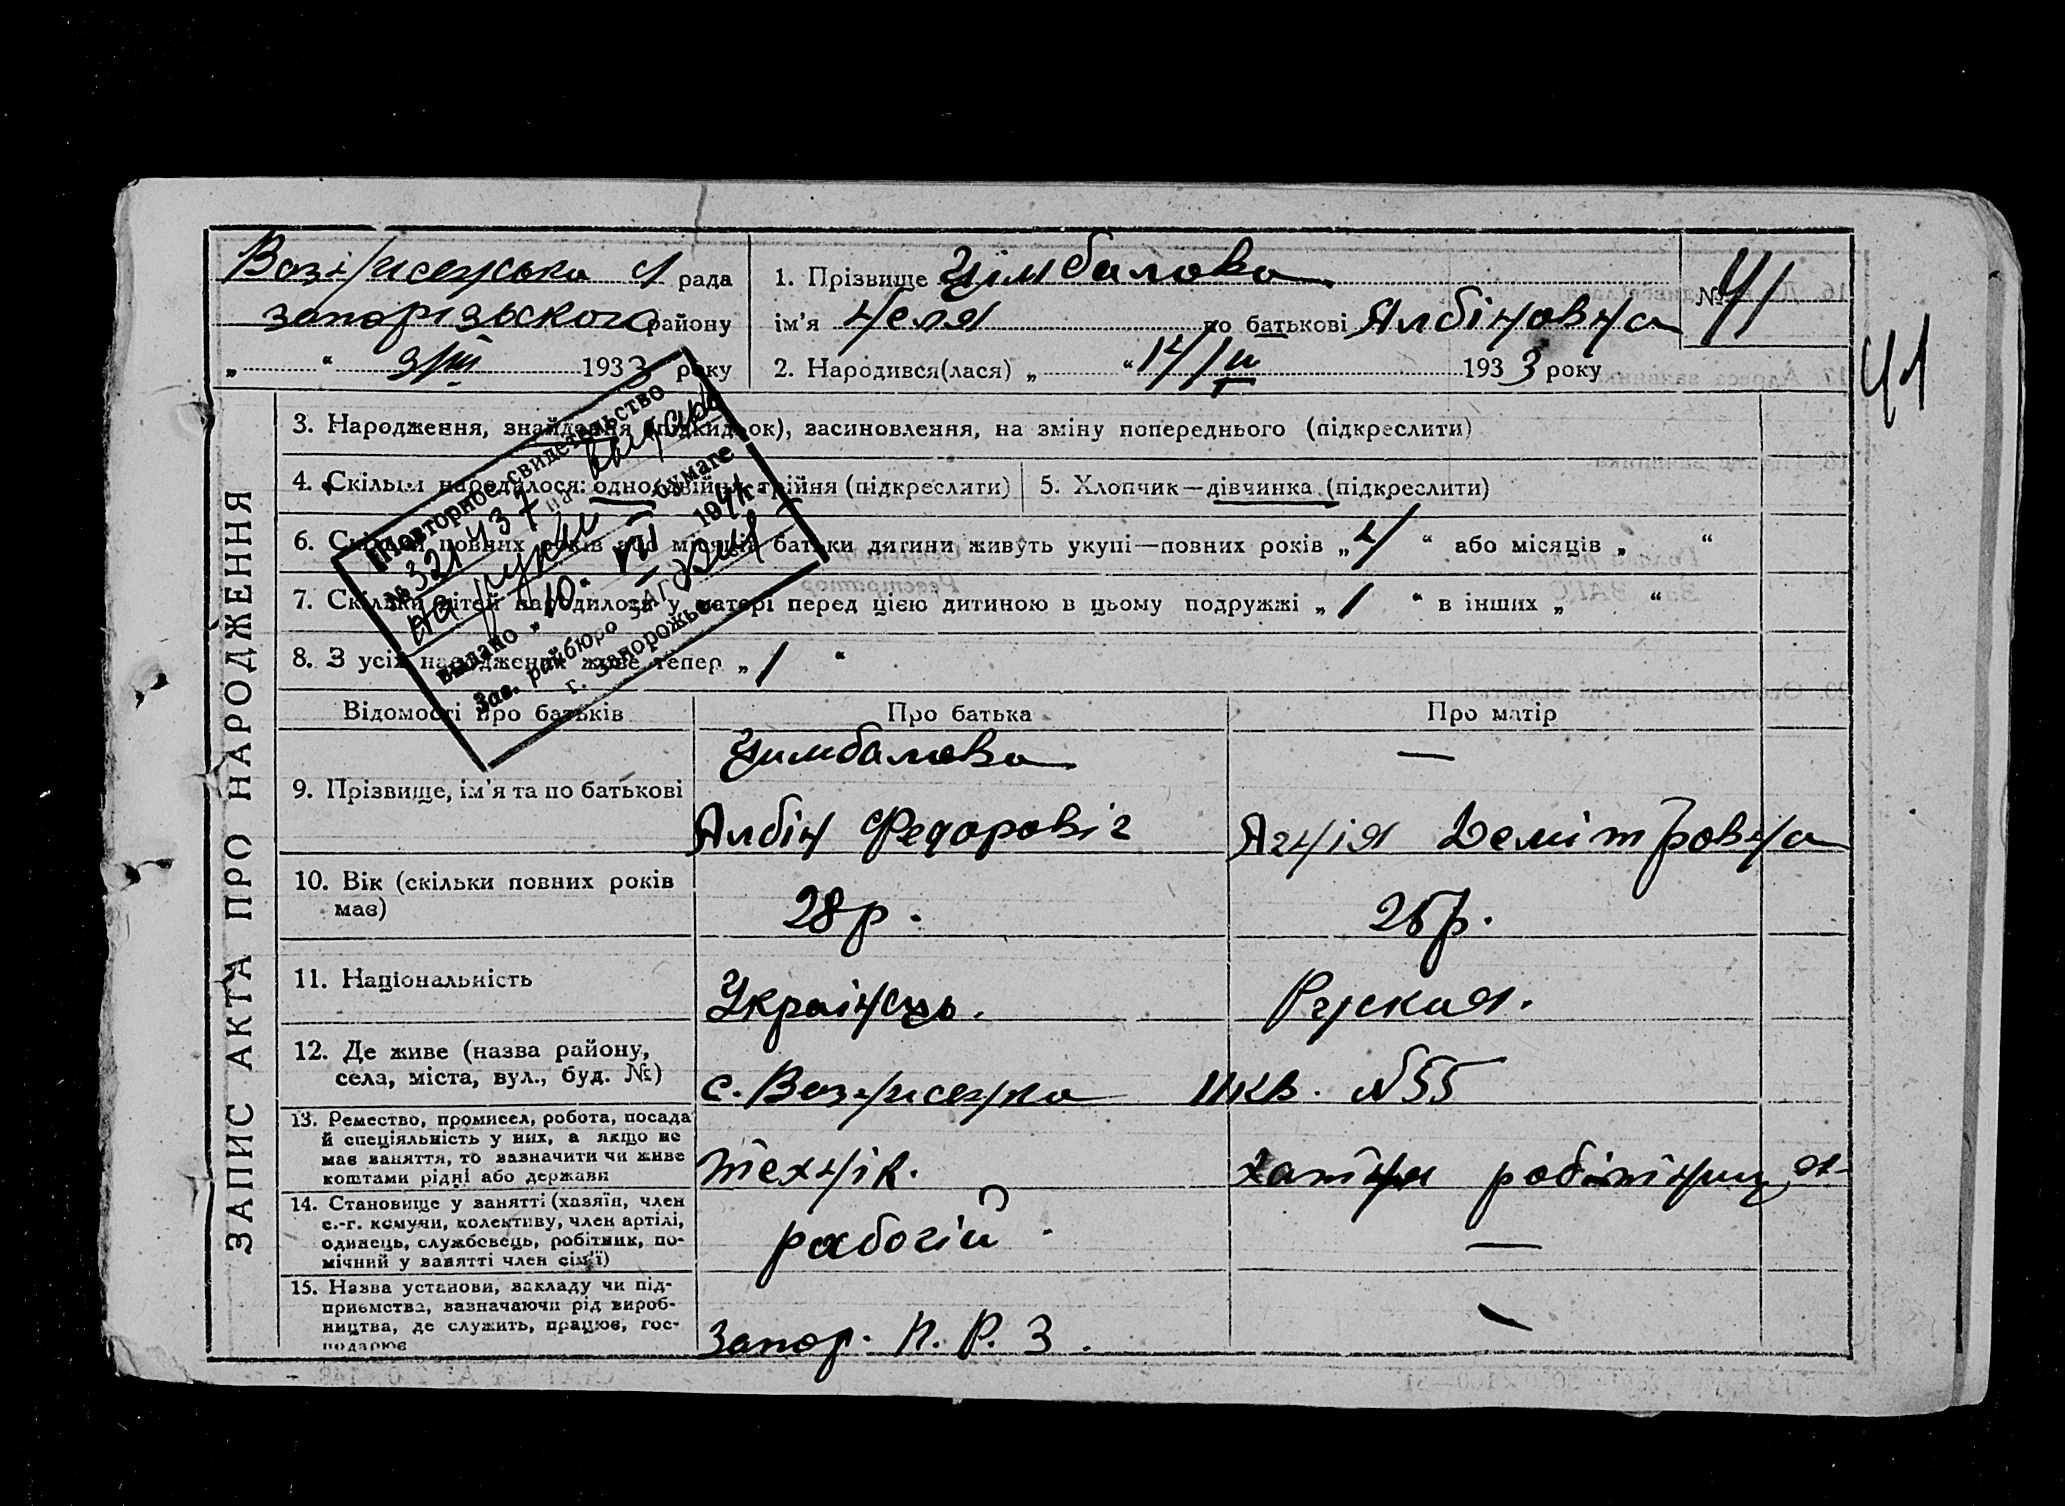 Вознисенська с/рада
Запорізьского району
„ “ 3/III 1933 року
1. Прізвище Цімбалова
ім’я Неля по батькові Албіновна
№ 41
2. Народився(лася) „ “ 14/II 1933 року
41
ЗАПИС АКТА ПРО НАРОДЖЕННЯ
3. Народження, знайдення (підкидьок), засиновлення, на зміну попереднього (підкреслити)
4. Скільки народилося: одно, двійня, трійня (підкреслити)
5. Хлопчик—дівчинка (підкреслити)
6. Скільки повних років або місяців батьки дитини живуть укупі—повних років „4“ або місяців „ “
7. Скільки дітей народилося у матері перед цією дитиною в цьому подружжі „1“ в інших „ “
8. З усіх народжених живе тепер „1“
Повторное свидетельство
№ 321437 на
на руки бумаге
выдано „10“ VII 194
Зав. райбюро ЗАГС
г. Запорожье
Відомості про батьків
Про батька
Про матір
9. Прізвище, ім’я та по батькові
Цимбалова
Албін Федоровіч
—
Агнія Демітровна
10. Вік (скільки повних років має)
28 р.
25 р.
11. Національність
Українець.
Руская.
12. Де живе (назва району,
села, міста, вул., буд. №)
с. Вознисенка II кв. №55
13. Ремество, промисел, робота, посада
й спеціяльність у них, а якщо не
має заняття, то зазначити чи живе
коштами рідні або держави
технік.
хатня робітниця
14. Становище у занятті (хазяїн, член
с.-г. комуни, колективу, член артілі,
одинець, службовець, робітник, по-
мічний у занятті член сім’ї)
рабочій.
—
15. Назва установи, закладу чи під-
приємства, зазначаючи рід вироб-
ництва, де служить, працює, гос-
подарює
Запор. П. Р. З.
—